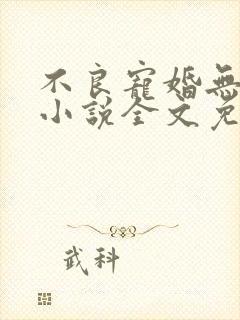 不良寵婚無
小說全文免
武科